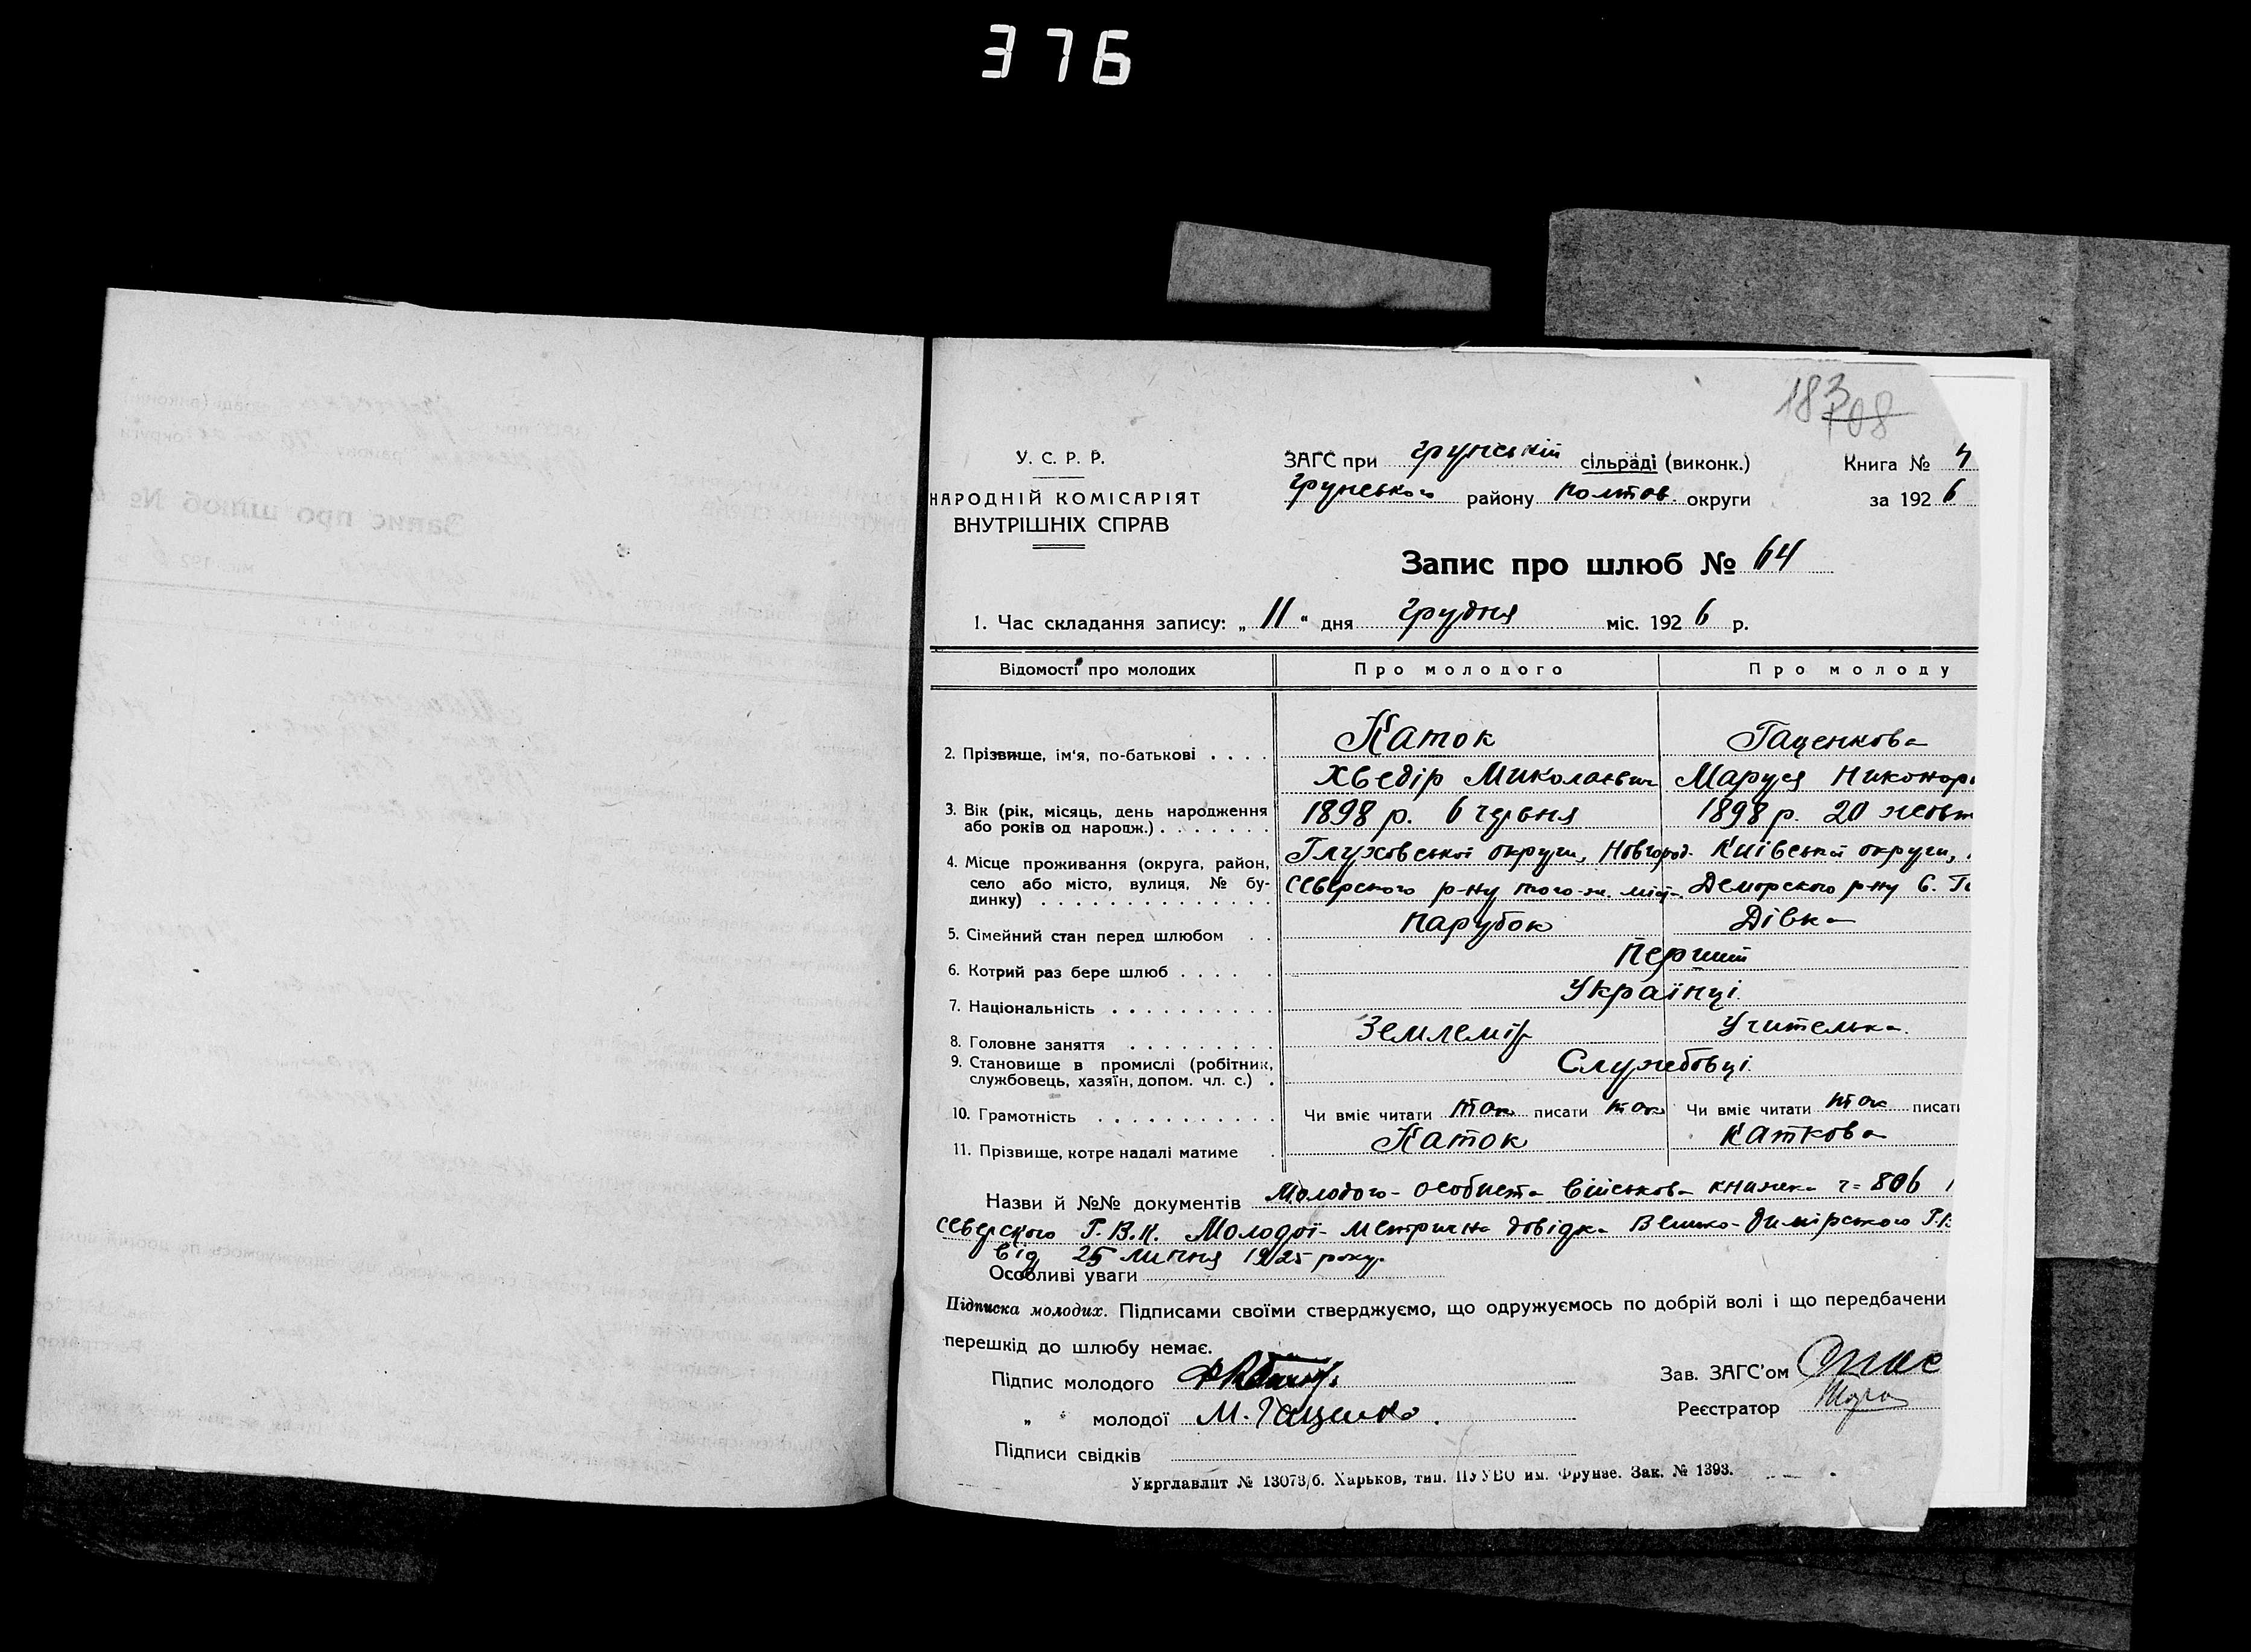 376
183
108
У. С. Р. Р.
НАРОДНІЙ КОМІСАРІЯТ
ВНУТРІШНІХ СПРАВ
ЗАГС при грунській сільраді (виконк.)
Книга №
грунського району Полтав. округи
за 192 6
Запис про шлюб № 64
1. Час складання запису: „ 11 “ дня грудня міс. 192 6 р.
Відомості про молодих
Про молодого
Про молоду
2. Прізвище, ім'я, по-батькові . . . .
Каток
Гаценкова
Хведір Миколаєвич
Маруся Никонор
3. Вік (рік, місяць, день народження
або років од народж.) . . . . . . .
1898 р. 6 червня
1898 р. 20 жовт
4. Місце проживання (округа, район,
село або місто, вулиця, № бу-
динку) . . . . . . . . . . . . . .
Глуховської округи, Новгород-
Сєверского р-ну того-ж. міс
Київської округи,
Демерского р-ну с.
5. Сімейний стан перед шлюбом . .
Парубок
Дівка
6. Котрий раз бере шлюб . . . . .
Перший
7. Національність . . . . . . . . . .
Українці
8. Головне заняття . . . . . . . . .
Землемір
Учителька.
9. Становище в промислі (робітник,
службовець, хазяїн, допом. чл. с.) .
Службовці
10. Грамотність . . . . . . . . . . .
Чи вміє читати так писати так
Чи вміє читати так писати
11. Прізвище, котре надалі матиме .
Каток
Каткова
Назви й №№ документів Молодого - особиста військова книжка ч= 806
Сєверского Г.В.К. Молодої - метрична довідка Велико-Димірського
від 25 липня 1925 року.
Особливі уваги
Підписка молодих. Підписами своїми стверджуємо, що одружуємось по добрій волі і що передбачени
перешкід до шлюбу немає.
Підпис молодого
„ “ молодої М. Гаценко.
Підписи свідків
Зав. ЗАГС'ом
Реєстратор
Укрглавліт № 13073/б. Харьков, тип. ПУУВО им. Фрунзе. Зак. № 1393.